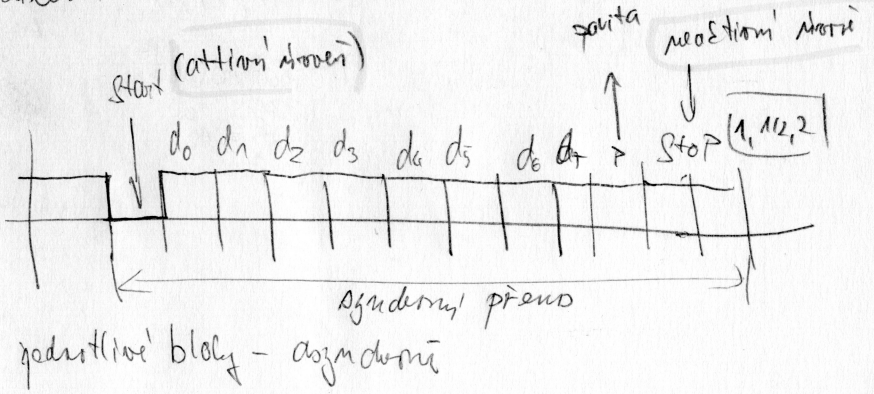 parita
neaktivní úroveň
Start (aktivní úroveň)
d₀ d₁ d₂ d₃ d₄ d₅ d₆ d₇ P Stop [1, 1/2, 2]
synchronní přenos
jednotlivé bloky – asynchronně